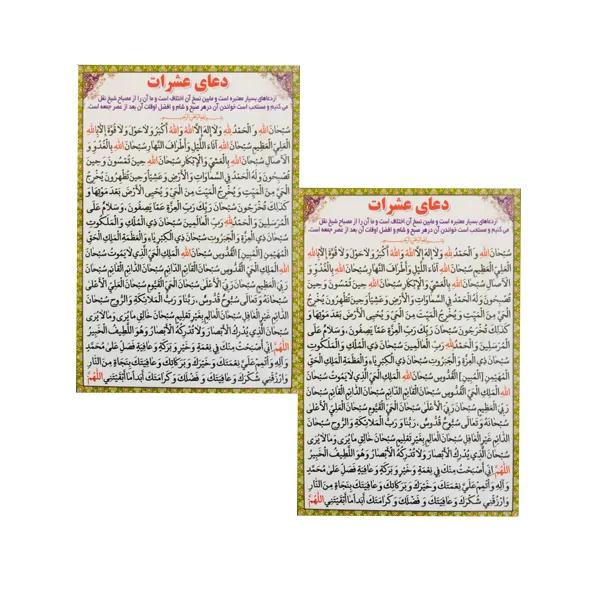 دعای عشرات
ازدعاهای بسیار معتبره است و مابین نسخ آن اختلاف است و ما آن را از مصباح شیخ نقل
می‌کنیم و مستحب است خواندن آن درهر صبح و شام و افضل اوقات آن بعد از عصر جمعه است.
سُبْحَانَ اللهِ وَ الْحَمْدُ لِلهِ وَ لَا إِلَهَ إِلَّا اللهُ وَ اللهُ أَكْبَرُ وَ لَا حَوْلَ وَ لَا قُوَّةَ إِلَّا بِاللهِ
الْعَلِيِّ الْعَظِيمِ سُبْحَانَ اللهِ آنَاءَ اللَّيْلِ وَ أَطْرَافَ النَّهَارِ سُبْحَانَ اللهِ بِالْغُدُوِّ وَ
الْآصَالِ سُبْحَانَ اللهِ بِالْعَشِيِّ وَ الْإِبْكَارِ سُبْحَانَ اللهِ حِينَ تُمْسُونَ وَ حِينَ
تُصْبِحُونَ وَ لَهُ الْحَمْدُ فِي السَّمَاوَاتِ وَ الْأَرْضِ وَ عَشِيّاً وَ حِينَ تُظْهِرُونَ يُخْرِجُ
الْحَيَّ مِنَ الْمَيِّتِ وَ يُخْرِجُ الْمَيِّتَ مِنَ الْحَيِّ وَ يُحْيِي الْأَرْضَ بَعْدَ مَوْتِهَا وَ
كَذَلِكَ تُخْرَجُونَ سُبْحَانَ رَبِّكَ رَبِّ الْعِزَّةِ عَمَّا يَصِفُونَ، وَ سَلَامٌ عَلَى
الْمُرْسَلِينَ وَ الْحَمْدُ لِلهِ رَبِّ الْعَالَمِينَ سُبْحَانَ ذِي الْمُلْكِ وَ الْمَلَكُوتِ
سُبْحَانَ ذِي الْعِزَّةِ وَ الْجَبَرُوتِ سُبْحَانَ ذِي الْكِبْرِيَاءِ وَ الْعَظَمَةِ الْمَلِكِ الْحَقِّ
الْمُهَيْمِنِ [الْمُبِينِ] الْقُدُّوسِ سُبْحَانَ اللهِ الْمَلِكِ الْحَيِّ الَّذِي لَا يَمُوتُ سُبْحَانَ
اللهِ الْمَلِكِ الْحَيِّ الْقُدُّوسِ سُبْحَانَ الْقَائِمِ الدَّائِمِ سُبْحَانَ الدَّائِمِ الْقَائِمِ سُبْحَانَ
رَبِّيَ الْعَظِيمِ سُبْحَانَ رَبِّيَ الْأَعْلَى سُبْحَانَ الْحَيِّ الْقَيُّومِ سُبْحَانَ الْعَلِيِّ الْأَعْلَى
سُبْحَانَهُ وَ تَعَالَى سُبُّوحٌ قُدُّوسٌ، رَبُّنَا وَ رَبُّ الْمَلَائِكَةِ وَ الرُّوحِ سُبْحَانَ
الدَّائِمِ غَيْرِ الْغَافِلِ سُبْحَانَ الْعَالِمِ بِغَيْرِ تَعْلِيمٍ سُبْحَانَ خَالِقِ مَا يُرَى وَ مَا لَا يُرَى
سُبْحَانَ الَّذِي يُدْرِكُ الْأَبْصَارَ وَ لَا تُدْرِكُهُ الْأَبْصَارُ وَ هُوَ اللَّطِيفُ الْخَبِيرُ
اللَّهُمَّ إِنِّي أَصْبَحْتُ مِنْكَ فِي نِعْمَةٍ وَ خَيْرٍ وَ بَرَكَةٍ وَ عَافِيَةٍ فَصَلِّ عَلَى مُحَمَّدٍ
وَ آلِهِ وَ أَتْمِمْ عَلَيَّ نِعْمَتَكَ وَ خَيْرَكَ وَ بَرَكَاتِكَ وَ عَافِيَتَكَ بِنَجَاةٍ مِنَ النَّارِ
وَ ارْزُقْنِي شُكْرَكَ وَ عَافِيَتَكَ وَ فَضْلَكَ وَ كَرَامَتَكَ أَبَداً مَا أَبْقَيْتَنِي اللَّهُمَّ
دعای عشرات
ازدعاهای بسیار معتبره است و مابین نسخ آن اختلاف است و ما آن را از مصباح شیخ نقل
می‌کنیم و مستحب است خواندن آن درهر صبح و شام و افضل اوقات آن بعد از عصر جمعه است.
سُبْحَانَ اللهِ وَ الْحَمْدُ لِلهِ وَ لَا إِلَهَ إِلَّا اللهُ وَ اللهُ أَكْبَرُ وَ لَا حَوْلَ وَ لَا قُوَّةَ إِلَّا بِاللهِ
الْعَلِيِّ الْعَظِيمِ سُبْحَانَ اللهِ آنَاءَ اللَّيْلِ وَ أَطْرَافَ النَّهَارِ سُبْحَانَ اللهِ بِالْغُدُوِّ وَ
الْآصَالِ سُبْحَانَ اللهِ بِالْعَشِيِّ وَ الْإِبْكَارِ سُبْحَانَ اللهِ حِينَ تُمْسُونَ وَ حِينَ
تُصْبِحُونَ وَ لَهُ الْحَمْدُ فِي السَّمَاوَاتِ وَ الْأَرْضِ وَ عَشِيّاً وَ حِينَ تُظْهِرُونَ يُخْرِجُ
الْحَيَّ مِنَ الْمَيِّتِ وَ يُخْرِجُ الْمَيِّتَ مِنَ الْحَيِّ وَ يُحْيِي الْأَرْضَ بَعْدَ مَوْتِهَا وَ
كَذَلِكَ تُخْرَجُونَ سُبْحَانَ رَبِّكَ رَبِّ الْعِزَّةِ عَمَّا يَصِفُونَ، وَ سَلَامٌ عَلَى
الْمُرْسَلِينَ وَ الْحَمْدُ لِلهِ رَبِّ الْعَالَمِينَ سُبْحَانَ ذِي الْمُلْكِ وَ الْمَلَكُوتِ
سُبْحَانَ ذِي الْعِزَّةِ وَ الْجَبَرُوتِ سُبْحَانَ ذِي الْكِبْرِيَاءِ وَ الْعَظَمَةِ الْمَلِكِ الْحَقِّ
الْمُهَيْمِنِ [الْمُبِينِ] الْقُدُّوسِ سُبْحَانَ اللهِ الْمَلِكِ الْحَيِّ الَّذِي لَا يَمُوتُ سُبْحَانَ
اللهِ الْمَلِكِ الْحَيِّ الْقُدُّوسِ سُبْحَانَ الْقَائِمِ الدَّائِمِ سُبْحَانَ الدَّائِمِ الْقَائِمِ سُبْحَانَ
رَبِّيَ الْعَظِيمِ سُبْحَانَ رَبِّيَ الْأَعْلَى سُبْحَانَ الْحَيِّ الْقَيُّومِ سُبْحَانَ الْعَلِيِّ الْأَعْلَى
سُبْحَانَهُ وَ تَعَالَى سُبُّوحٌ قُدُّوسٌ، رَبُّنَا وَ رَبُّ الْمَلَائِكَةِ وَ الرُّوحِ سُبْحَانَ
الدَّائِمِ غَيْرِ الْغَافِلِ سُبْحَانَ الْعَالِمِ بِغَيْرِ تَعْلِيمٍ سُبْحَانَ خَالِقِ مَا يُرَى وَ مَا لَا يُرَى
سُبْحَانَ الَّذِي يُدْرِكُ الْأَبْصَارَ وَ لَا تُدْرِكُهُ الْأَبْصَارُ وَ هُوَ اللَّطِيفُ الْخَبِيرُ
اللَّهُمَّ إِنِّي أَصْبَحْتُ مِنْكَ فِي نِعْمَةٍ وَ خَيْرٍ وَ بَرَكَةٍ وَ عَافِيَةٍ فَصَلِّ عَلَى مُحَمَّدٍ
وَ آلِهِ وَ أَتْمِمْ عَلَيَّ نِعْمَتَكَ وَ خَيْرَكَ وَ بَرَكَاتِكَ وَ عَافِيَتَكَ بِنَجَاةٍ مِنَ النَّارِ
وَ ارْزُقْنِي شُكْرَكَ وَ عَافِيَتَكَ وَ فَضْلَكَ وَ كَرَامَتَكَ أَبَداً مَا أَبْقَيْتَنِي اللَّهُمَّ